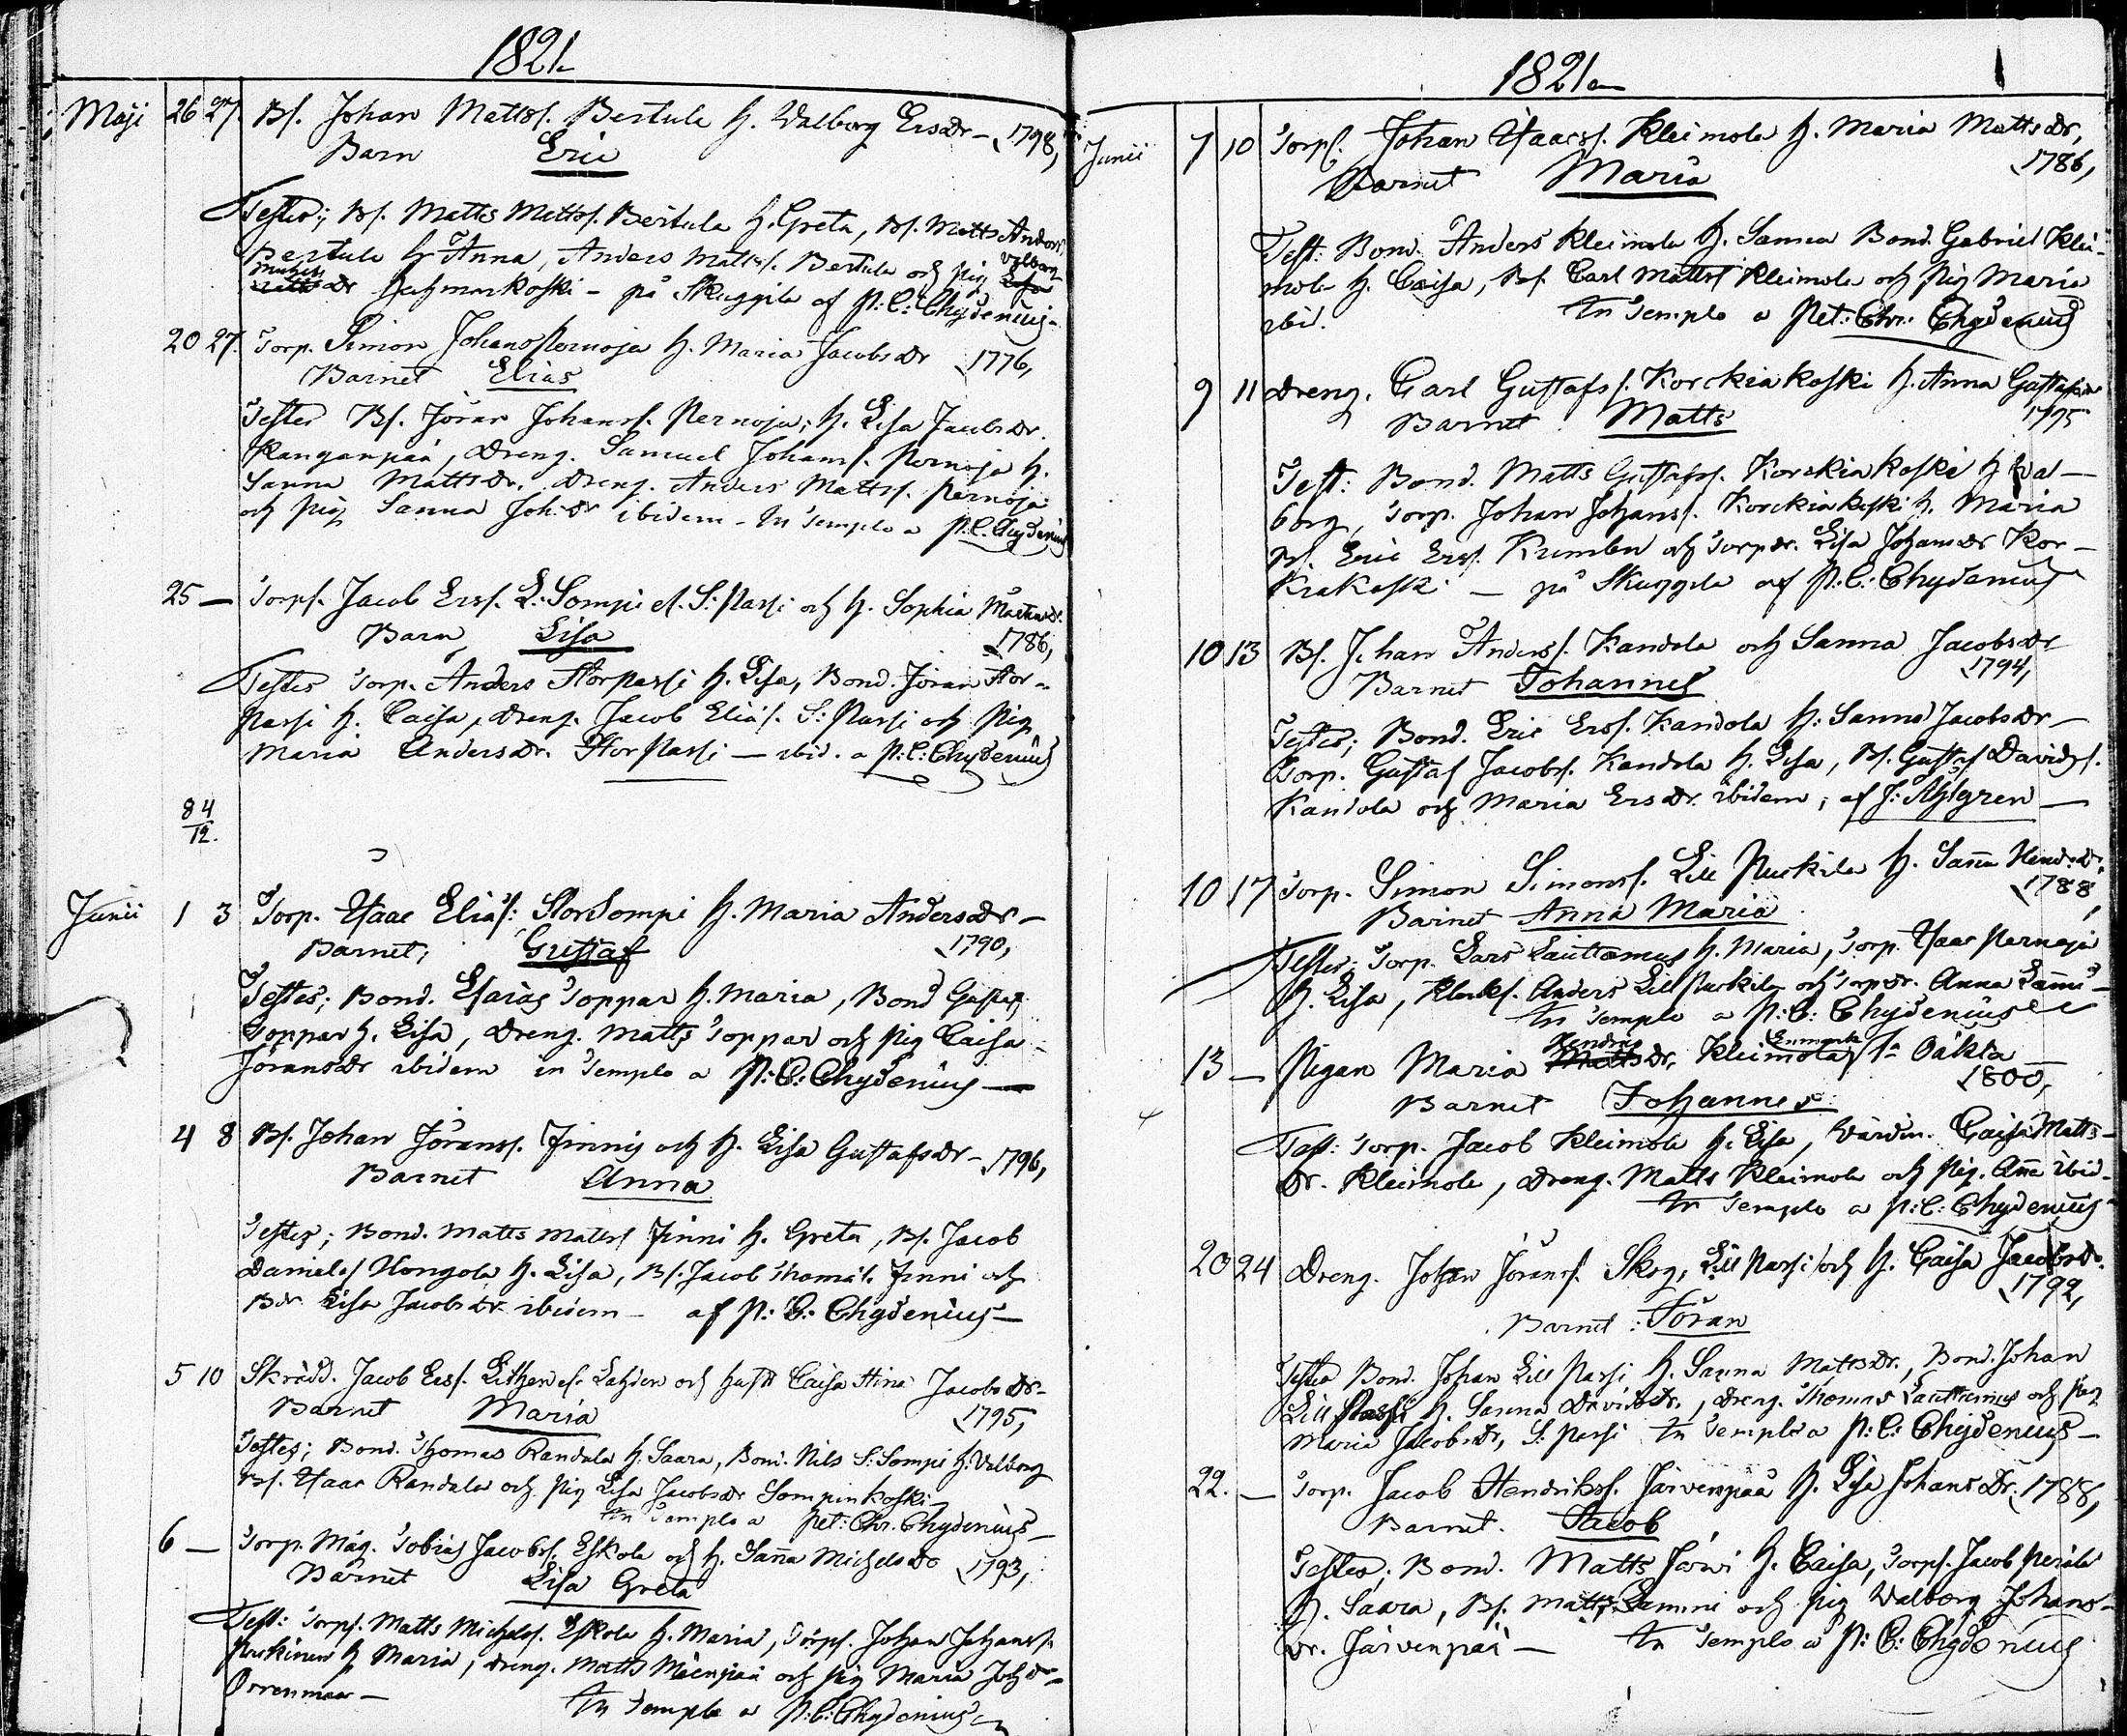 1821
Maji 26 27. Bs. Johan Mattss. Bertula h. Walborg Ersdr - 1798,
Barn Eric
Testes; Bs. Matts Mattss. Bertula h. Greta, Bs. Matts Anders.
Bertula h Anna, Anders Mattss. Bertula och Pig Valborg
Michelsdr - på Skuggila af P: C: Chydenius -
20 27. Torp. Simon Johans Pernoja h. Maria Jacobsdr 1776,
Barnet Elias
Testes Bs. Jöran Johanss. Pernoja; h. Lisa Jacobsdr.
Kanganpää, Dreng. Samuel Johanss. Pernoja h.
Sanna Mattsdr. Dreng. Anders Mattss. Pernoja
och Pig Sanna Joh:dr ibidem - In Templo a P. C. Chydenius
25 — Torps. Jacob Erss. L: Sompi el. S: Passi och h. Sophia
Barn Lisa 1786,
Testes Torp. Anders Storpassi h. Lisa, Bond. Jöran Stor-
passi h. Caisa, Dreng. Jacob Eliæs. S: Passi och Pig
Maria Andersdr. Stor Passi — ibid. a P: C: Chydenius
84
12.
Junii 1 3 Torp. Isaac Eliæs: Storsompi h. Maria Andersdr —
Barnet; Gustaf 1790,
Testes; Bond. Esaias Toppar h. Maria, Bond Gustaf
Toppar h. Lisa, Dreng. Matts Toppar och Pig Caisa
Jöransdr ibidem in Templo a P: C: Chydenius —
4 8 Bs. Johan Jöranss. Finnis och h. Lisa Gustafsdr - 1796,
Barnet Anna
Testes; Bond. Matts Mattss Finni h. Greta, Bs. Jacob
Daniels Hongola h. Lisa, Bs. Jacob Thomæs. Finni och
Bdr Lisa Jacobsdr ibidem - af P: C: Chydenius —
5 10 Skrädd. Jacob Erss. Lithen el. Lahden och hust Caisa Stina Jacobsdr -
Barnet Maria 1795,
Testes; Bond. Thomas Randala h. Saara, Bond. Nils S: Sompi h. Valborg
Bs. Isaac Randala och Pig Lisa Jacobsdr Sompinkoski -
In Templo a Pet: Chr. Chydenius —
6 — Torp. Måg. Tobias Jacobss. Eskola och h. Sanna Michelsdr 1793,
Barnet Lisa Greta
Test: Torps. Matts Michelss. Eskola h. Maria, Torps. Johan Johanss.
h Maria, Dreng. Matts Mäenpää och Pig Maria Johdr -
Orrenmaa — In Templo a P: C: Chydenius
1821
Junii 7 10 Torps. Johan Isaacss. Kleimola h. Maria Mattsdr,
Barnet Maria 1786,
Test: Bond. Anders Kleimola h. Sanna Bond. Gabriel Klei-
mola h. Caisa, Bs. Carl Mattss Kleimola och Pig Maria
ibid. In Templo a Pet: Chr: Chydenius
9 11 Dreng. Carl Gustafss. Korckiakoski h. Anna Gustafsdr
Barnet Matts 1795
Test: Bond. Matts Gustafss. Korckiakoski h Val-
borg, Torp. Johan Johanss. Korckiakoski h. Maria
Bs. Eric Erss. och Torpdr. Lisa Johansdr Kor-
kiakoski — på Skuggila af P: C: Chydenius
10 13 Bs. Johan Anderss. Kandola och Sanna Jacobsdr
Barnet Johannes 1794,
Testes; Bond. Eric Erss. Kandola h. Sanna Jacobsdr —
Torp. Gustaf Jacobss. Kandola h. Lisa, Bs. Gustaf Davidss.
Kandola och Maria Ersdr. ibidem; af J: Ahlgren —
10 17 Torp. Simon Simonss. Lill Puskila h. Sanna Hend:dr
Barnet Anna Maria 1788,
Testes; Torp. Lars Lauttamus h. Maria, Torp. Isaac Pernoja
h. Lisa, Klocks. Anders Lill Puskila och Torpdr. Anna
In Templo a P: C: Chydenius
13 — Pigan Maria Hendrics Mattsdr. Kleimola
1800,
Barnet Johannes
Test: Torp. Jacob Kleimola h. Lisa, Värdin. Caisa Matts-
dr. Kleimola, Dreng. Matts Kleimola och Pig. Anna ibid -
In Templo a P: C: Chydenius
20 24 Dreng. Johan Jöranss. Skog, Lill Passi och h. Caisa Jacobsdr.
1792,
Barnet: Jöran
Testes Bond. Johan Lill Passi h. Sanna Mattsdr., Bond. Johan
Lill Passi h. Sanna Davidsdr., Dreng. Thomas Lauttamus och Pig
Maria Jacobsdr, S: Passi In Templo a P: C: Chydenius —
22. — Torp. Jacob Hendrikss. Järvenpää h. Lisa Johansdr. 1788,
Barnet. Jacob
Testes; Bond. Matts Järvi h. Caisa, Torps. Jacob Perälä
h. Saara, Bs. Matts Lammi och Pig Walborg Johans-
dr. Järvenpää — In Templo a P: C: Chydenius